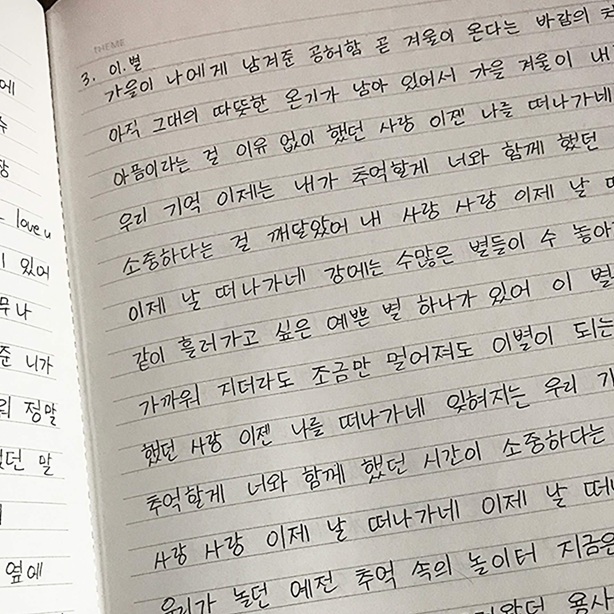 에
수
장
love u
있어
무나
준 니가
정말
던 말
옆에
THEME
3. 이.별
가을이 나에게 남겨준 공허함 곧 겨울이 온다는 바람의
아직 그대의 따뜻한 온기가 남아 있어서 가을 겨울이 내
아픔이라는 걸 이유 없이 했던 사랑 이젠 나를 떠나가네
우리 기억 이제는 내가 추억할게 너와 함께 했던
소중하다는 걸 깨달았어 내 사랑 사랑 이제 날
이제 날 떠나가네 강에는 수많은 별들이 수 놓아
같이 흘러가고 싶은 예쁜 별 하나가 있어 이 별
가까워 지더라도 조금만 멀어져도 이별이 되는
했던 사랑 이젠 나를 떠나가네 잊혀지는 우리 기
추억할게 너와 함께 했던 시간이 소중하다는
사랑 사랑 이제 날 떠나가네 이제 날 떠나
우리가 놀던 예전 추억 속의 놀이터 지금은